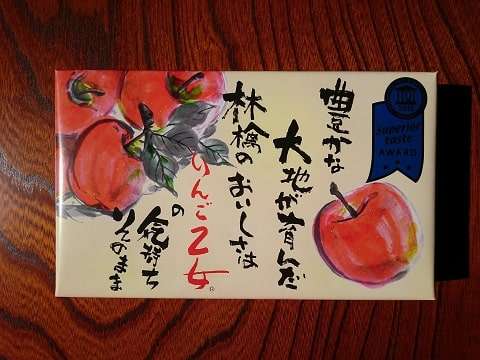 豊かな
大地が育んだ
林檎のおいしさは
りんご乙女
の
気持ち
そのまま
Superior
taste
AWARD